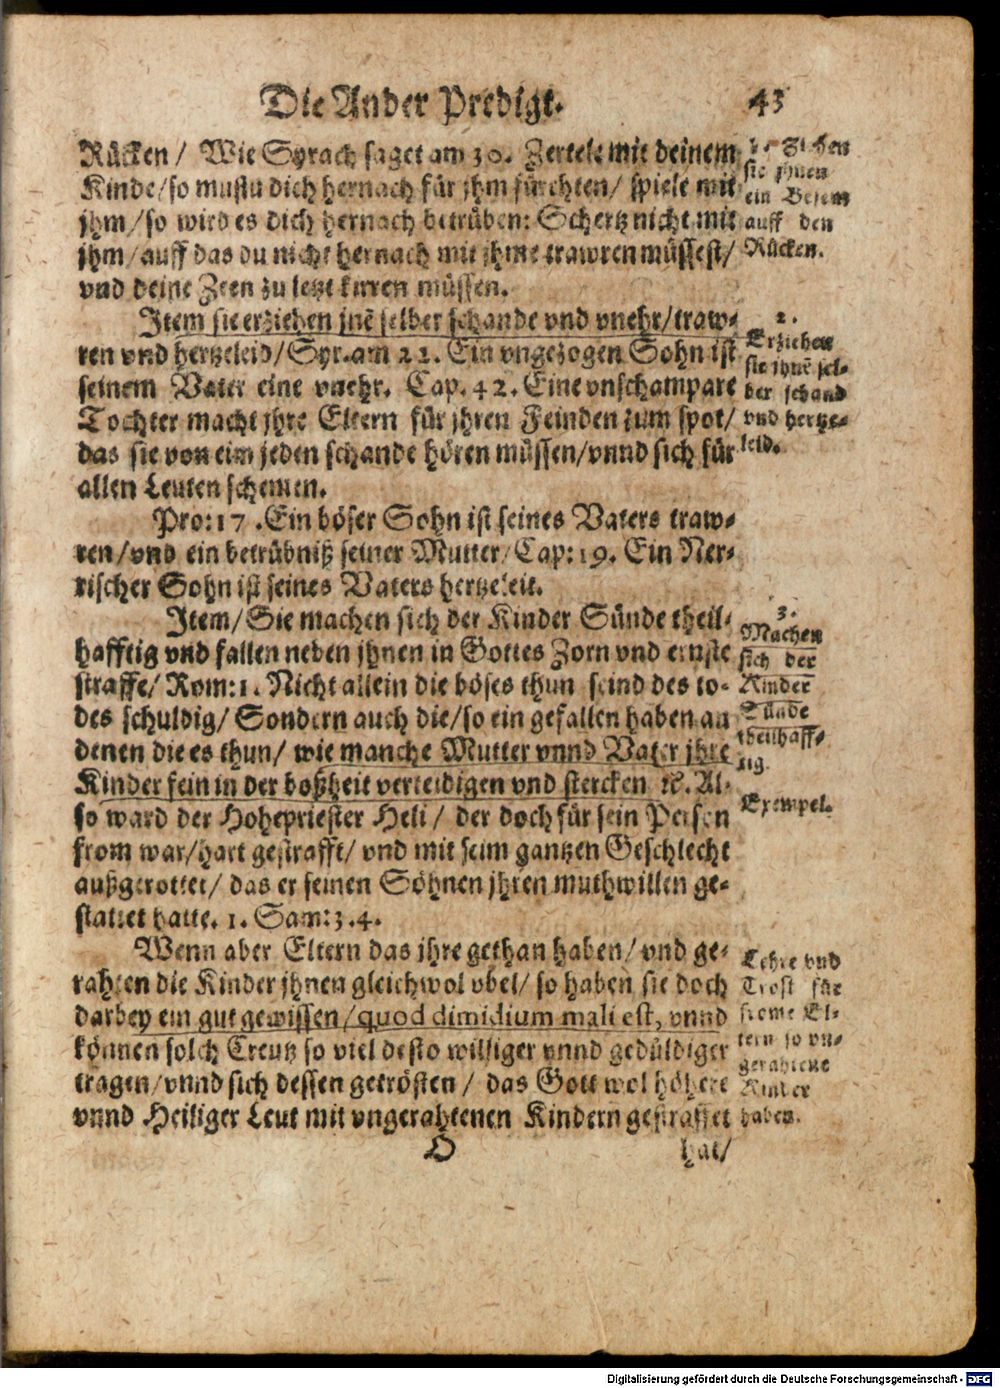 Die Ander Predigt. 43
Rücken / Wie Syrach saget am 30. Zertele mit deinem
Kinde/so mustu dich hernach für jhm fürchten/ spiele mit
jhm/so wird es dich hernach betrüben: Schertz nicht mit
jhm/auff das du nicht hernach mit jhme trawren müssest/
vnd deine Zeen zu letzt kirren müssen.
Item sie erziehen jnē selber schande vnd vnehr/traw-
ren vnd hertzeleid/Syr.am 22. Ein vngezogen Sohn ist
seinem Vater eine vnehr. Cap.42. Eine vnschampare
Tochter macht jhre Eltern für jhren Feinden zum spot/
das sie von eim jeden schande hören müssen/vnnd sich für
allen Leuten schemen.
Pro:17 .Ein böser Sohn ist seines Vaters traw-
ren/vnd ein betrübniß seiner Mutter/Cap:19. Ein Ner-
rischer Sohn ist seines Vaters hertzeleit.
Item/Sie machen sich der Kinder Sünde theil-
hafftig vnd fallen neben jhnen in Gottes Zorn vnd ernste
straffe/ Rom:1. Nicht allein die böses thun seind des to-
des schuldig/ Sondern auch die/so ein gefallen haben an
denen die es thun/ wie manche Mutter vnnd Vater jhre
Kinder fein in der boßheit verteidigen vnd stercken ꝛc. Al-
so ward der Hohepriester Heli / der doch für sein Person
from war/hart gestrafft/ vnd mit seim gantzen Geschlecht
außgerottet/ das er seinen Söhnen jhren muthwillen ge-
stattet hatte. 1. Sam:3.4.
Wenn aber Eltern das jhre gethan haben/ vnd ge-
rahten die Kinder jhnen gleichwol vbel/ so haben sie doch
darbey ein gut gewissen/quod dimidium mali est, vnnd
können solch Creutz so viel desto williger vnnd gedüldiger
tragen/vnnd sich dessen getrösten / das Gott wol höhere
vnnd Heiliger Leut mit vngerahtenen Kindern gestraffet
O hat/
1. Ziehen
sie jhnen
ein Besem
auff den
Rücken.
2.
Erziehen
sie jhnē sel-
ber schand
vnd hertze-
leid.
3.
Machen
sich der
Kinder
Sünde
theilhaff-
tig.
Exempel.
Lehre vnd
Trost für
fromme El-
tern so vn-
gerahtene
Kinder
haben.
Digitalisierung gefördert durch die Deutsche Forschungsgemeinschaft - DFG